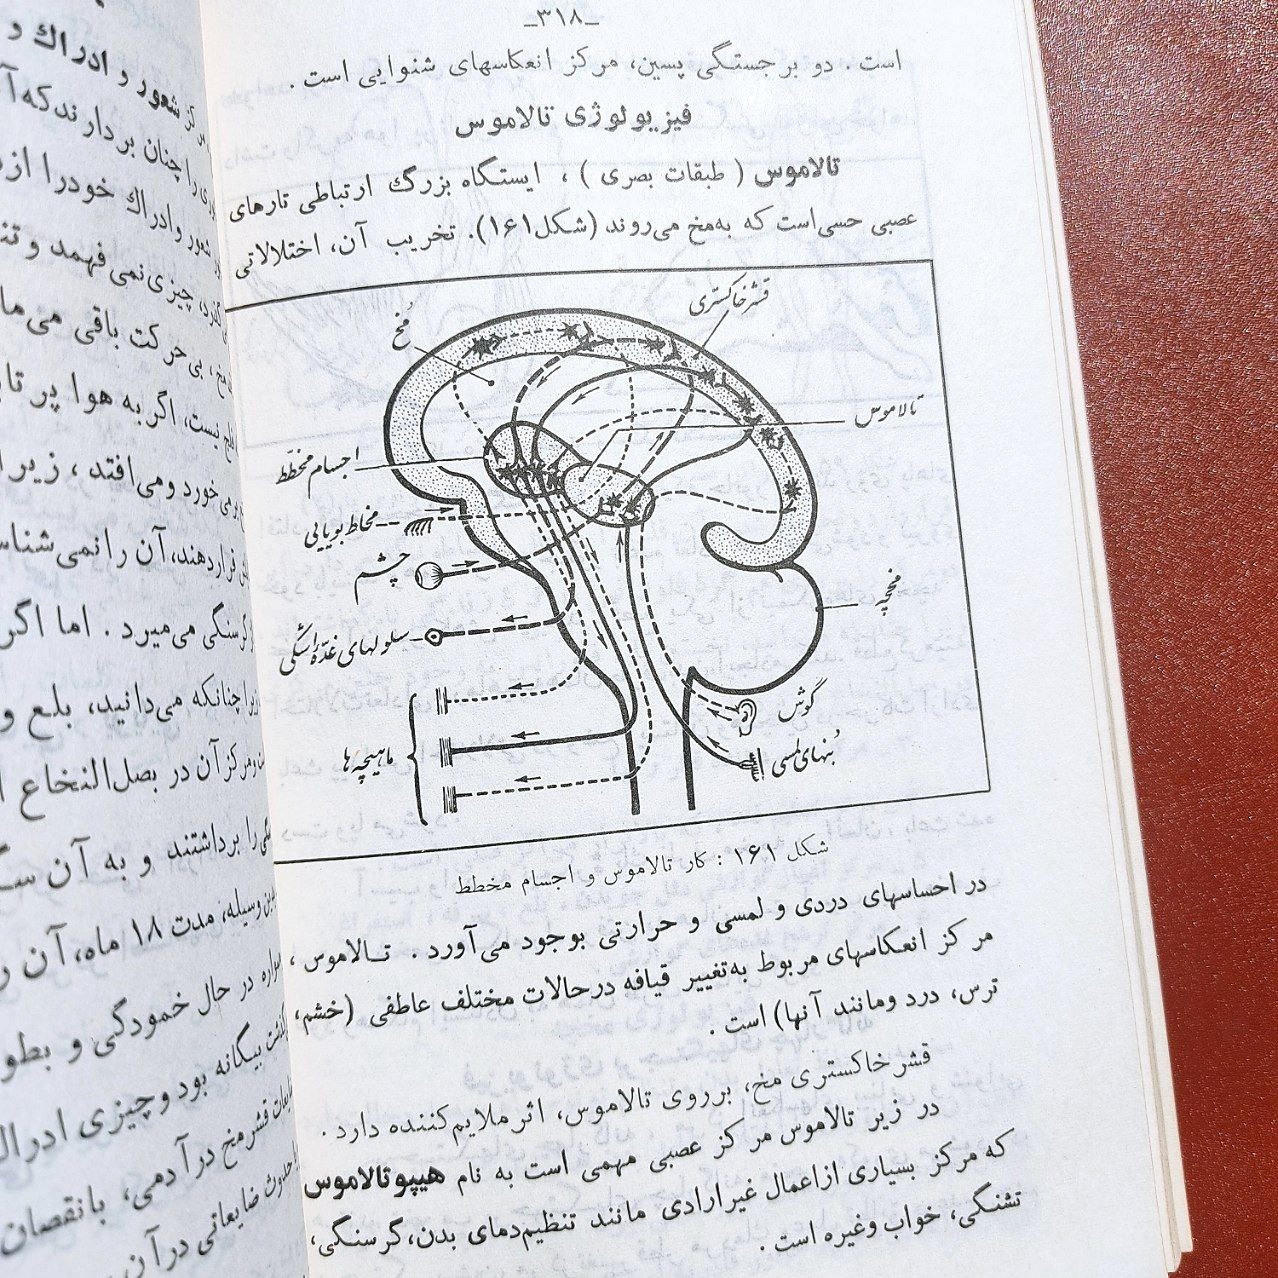 _۳۱۸_
است . دو برجستگی پسین، مرکز انعکاسهای شنوایی است .
فیزیولوژی تالاموس
تالاموس ( طبقات بصری ) ، ایستگاه بزرگ ارتباطی تارهای
عصبی حسی‌است که به‌مخ می‌روند (شکل۱۶۱). تخریب آن، اختلالاتی
قشر خاکستری
مخ
تالاموس
اجسام مخطّط
مخاط بویایی
چشم
مخچه
سلولهای غدّه اشکی
گوش
ماهیچه‌ها
تنهای لمسی
شکل ۱۶۱ : کار تالاموس و اجسام مخطط
در احساسهای دردی و لمسی و حرارتی بوجود می‌آورد . تالاموس ،
مرکز انعکاسهای مربوط به‌تغییر قیافه درحالات مختلف عاطفی (خشم،
ترس، درد ومانند آنها) است .
قشر خاکستری مخ، برروی تالاموس، اثر ملایم‌کننده دارد .
در زیر تالاموس مرکز عصبی مهمی است به نام هیپوتالاموس
که مرکز بسیاری ازاعمال غیرارادی مانند تنظیم‌دمای بدن،گرسنگی،
تشنگی، خواب وغیره است .
مرکز شعور و ادراك و
را چنان بردارند که
شعور وادراك خودرا از
چیزی نمی فهمد و
مخ، بی‌حرکت باقی می
نیست، اگر به هوا پر
می‌خورد ومی‌افتد ، زیرا
قراردهند، آن را نمی
گرسنگی می‌میرد . اما اگر
زیرا چنانکه می‌دانید، بلع و
مرکز آن در بصل‌النخاع
را برداشتند و به آن
بدین وسیله، مدت ۱۸ ماه، آن
همواره در حال خمودگی و
بیگانه بود و چیزی
قشر مخ در آدمی، بانقصان
ضایعاتی در آن